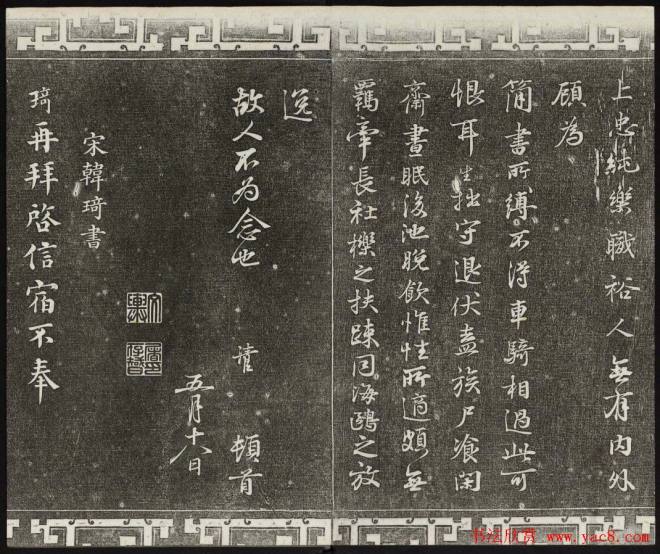 上忠純樂職裕人無有内外
顧為
簡書所縛不得車騎相過此可
恨耳生拙守退伏盍族尸飡閑
齋晝眠後池晚飲惟性所適頗無
羈牽長社櫟之扶踈同海鷗之放
逸
故人不為念也
頓首
五月十八日
宋韓琦書
琦再拜啓信宿不奉
书法欣赏
www.yac8.com